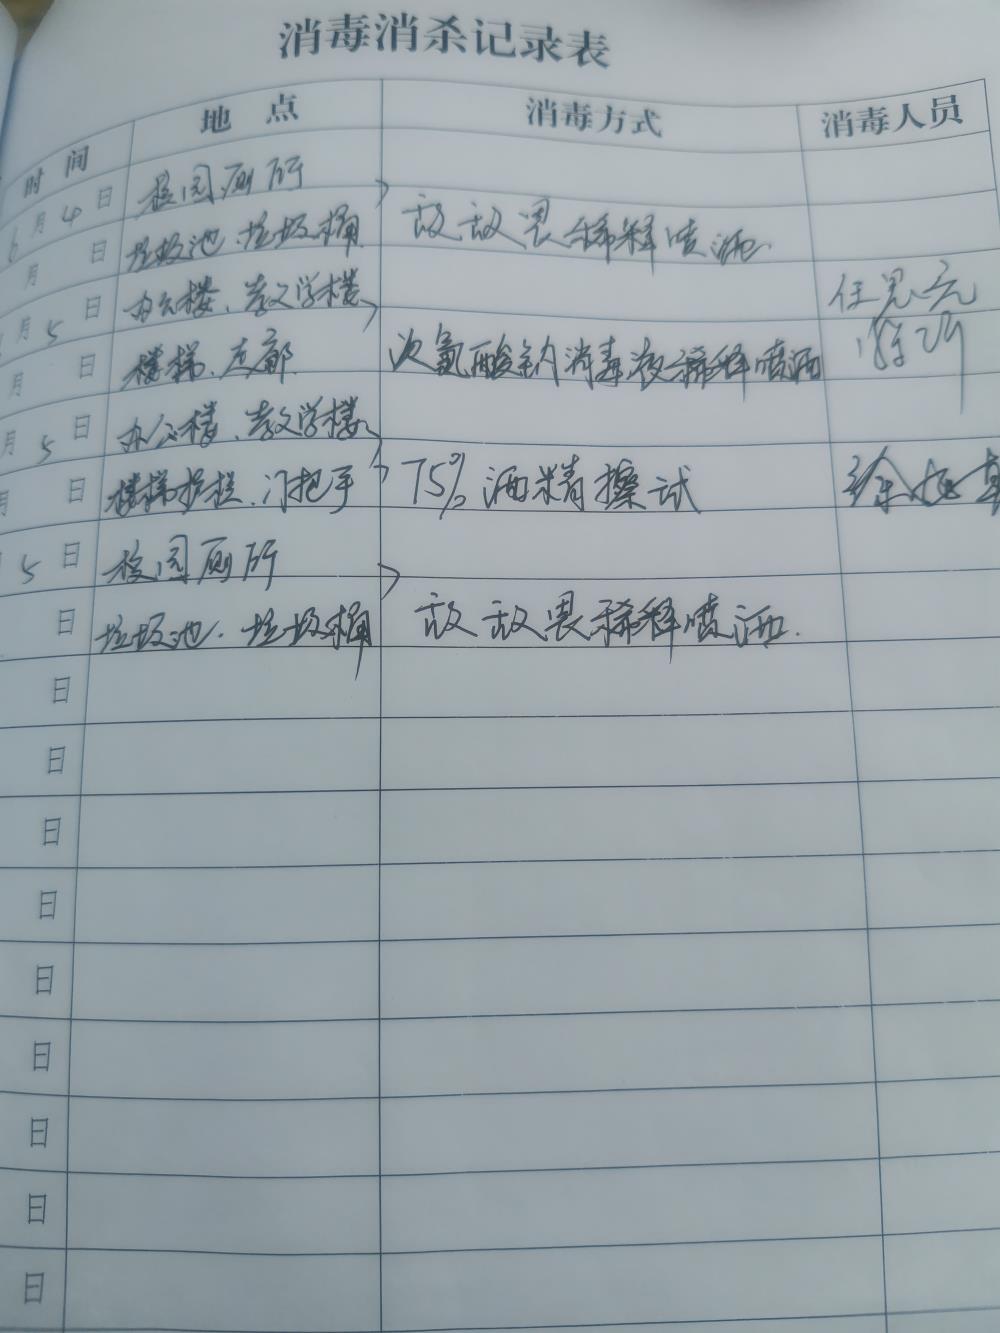 消毒消杀记录表
时间 地点 消毒方式 消毒人员
6月4日 校园厕所
月 日 垃圾池、垃圾桶 敌敌畏稀释喷洒.
月5日 办公楼、教学楼 任思元
月 日 楼梯、走廊 次氯酸钠消毒液稀释喷洒
月5日 办公楼、教学楼
月 日 楼梯护栏、门把手 75%酒精擦试
5日 校园厕所
日 垃圾池.垃圾桶 敌敌畏稀释喷洒.
日
日
日
日
日
日
日
日
日